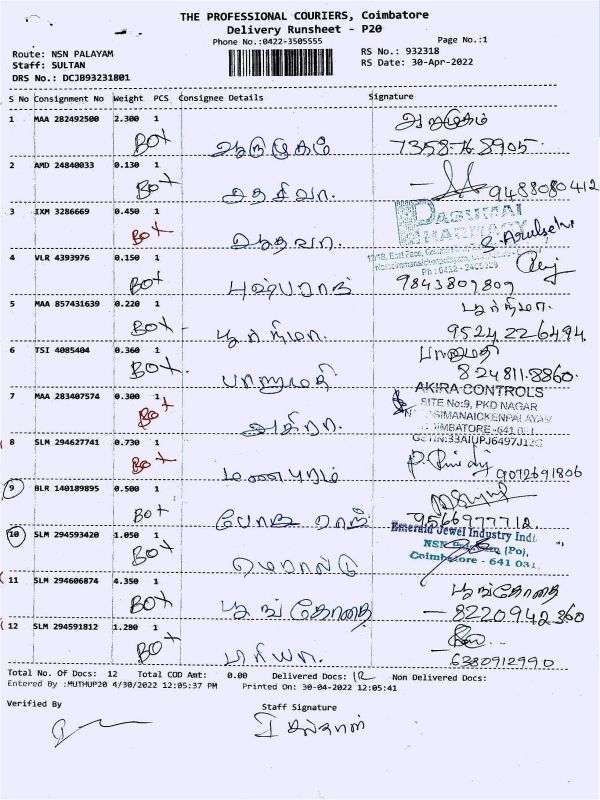 THE PROFESSIONAL COURIERS, Coimbatore
Delivery Runsheet - P20
Phone No.:0422-3505555 Page No.:1
Route: NSN PALAYAM RS No.: 932318
Staff: SULTAN RS Date: 30-Apr-2022
DRS No.: DCJB93231801
S No Consignment No Weight PCS Consignee Details Signature
1 MAA 282492500 2.300 1
BOX ஆறுமுகம் 7358768905.
2 AMD 24840033 0.130 1
BOX சதாசிவா. 9488080412
3 IXM 3286669 0.450 1 PASUMAI PHARMACY
BOX
4 VLR 4393976 0.150 1
BOX புஷ்பராஜ் 9843809809
5 MAA 857431639 0.220 1 பூர்ணிமா.
BOX பூர்ணிமா. 9524226494.
6 TSI 4085404 0.360 1 பானுமதி
BOX பானுமதி 8248118860.
7 MAA 283407574 0.300 1 AKIRA CONTROLS
SITE No:9, PKD NAGAR
BOX
8 SLM 294627741 0.730 1
BOX 9072691806
9 BLR 140189895 0.500 1
BOX 9566977712.
10 SLM 294593420 1.050 1 Emerald Jewel Industry Indi
BOX எமரால்டு Coimbatore - 641 031.
11 SLM 294606874 4.350 1 பூங்கோதை
BOX பூங்கோதை 8220942360
12 SLM 294591812 1.280 1
BOX 6380912990
Total No. Of Docs: 12 Total COD Amt: 0.00 Delivered Docs: 12 Non Delivered Docs:
Entered By :MUTHUP20 4/30/2022 12:05:37 PM Printed On: 30-04-2022 12:05:41
Verified By Staff Signature